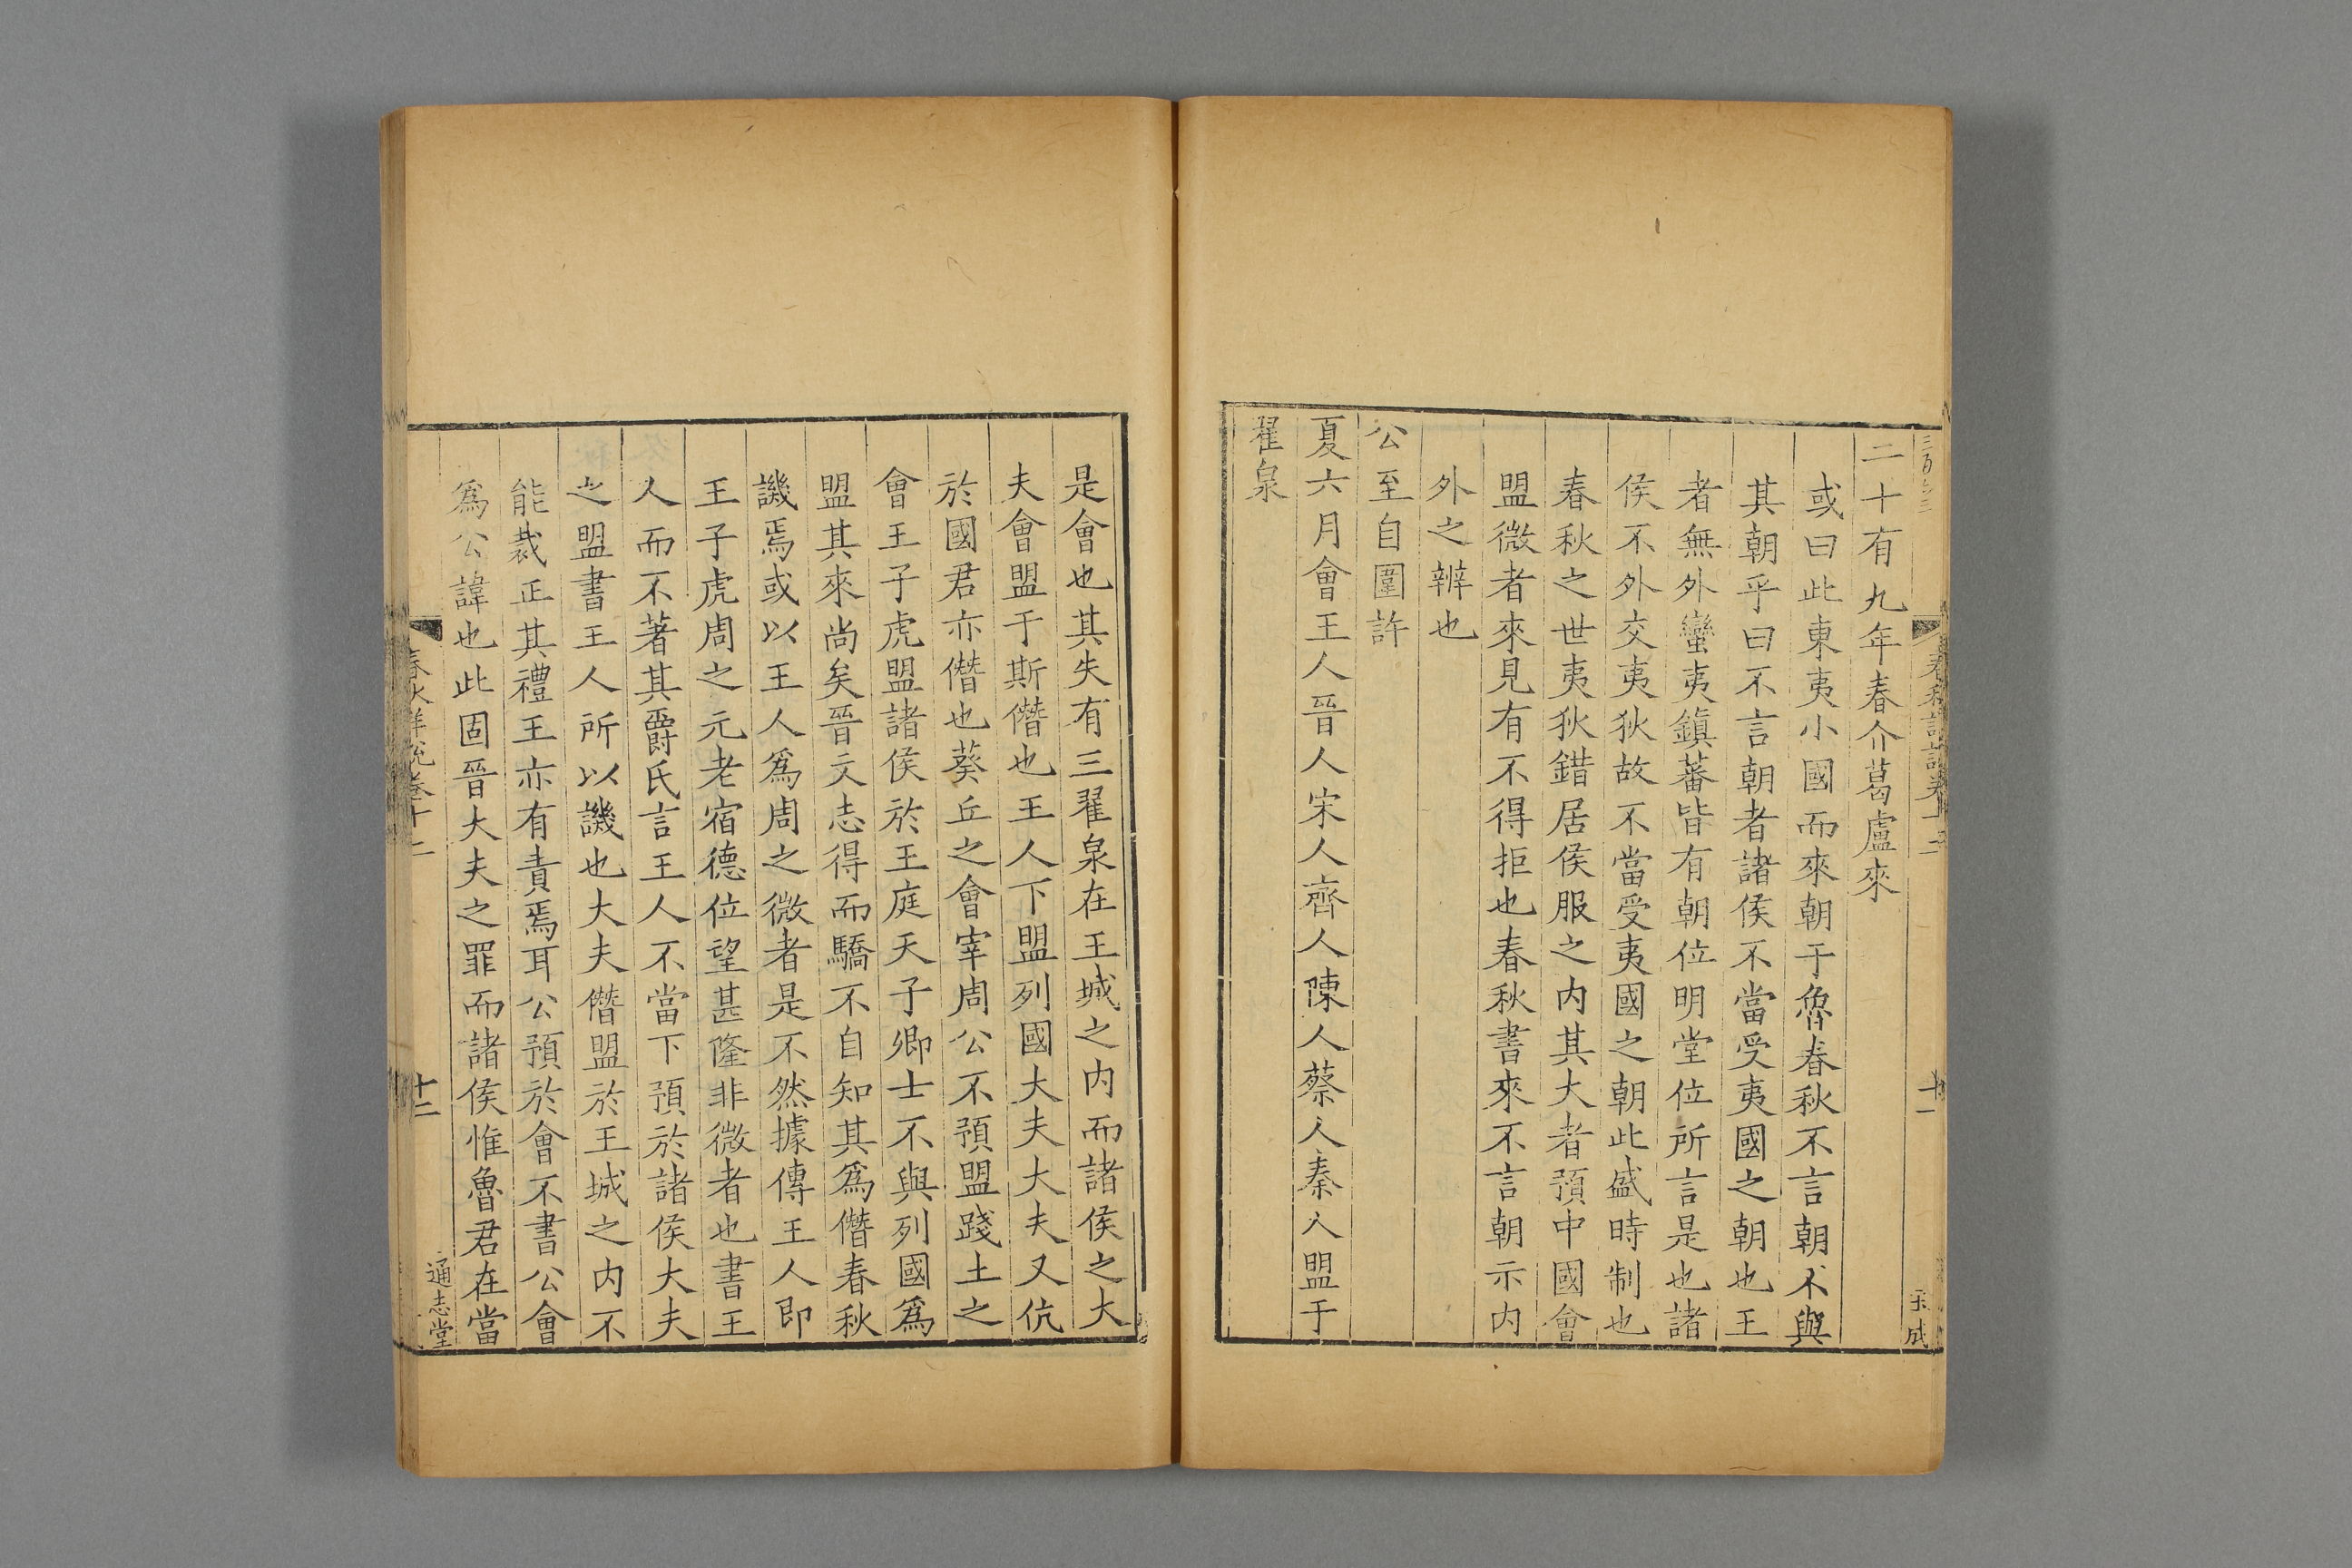 二十有九年春介葛盧來
或曰此東夷小國而來朝于魯春秋不言朝不與
其朝乎曰不言朝者諸侯不當受夷國之朝也王
者無外蠻夷鎮蕃皆有朝位明堂位所言是也諸
侯不外交夷狄故不當受夷國之朝此盛時制也
春秋之世夷狄錯居侯服之内其大者預中國會
盟微者來見有不得拒也春秋書來不言朝示内
外之辨也
公至自圍許
夏六月會王人晉人宋人齊人陳人蔡人秦人盟于
翟泉
是會也其失有三翟泉在王城之内而諸侯之大
夫會盟于斯僭也王人下盟列國大夫大夫又伉
於國君亦僭也葵丘之會宰周公不預盟踐土之
會王子虎盟諸侯於王庭天子卿士不與列國爲
盟其來尚矣晉文志得而驕不自知其爲僭春秋
譏焉或以王人爲周之微者是不然據傳王人即
王子虎周之元老宿德位望甚隆非微者也書王
人而不著其爵氏言王人不當下預於諸侯大夫
之盟書王人所以譏也大夫僭盟於王城之内不
能裁正其禮王亦有責焉耳公預於會不書公會
爲公諱也此固晉大夫之罪而諸侯惟魯君在當
春秋詳說卷十二
十二
通志堂